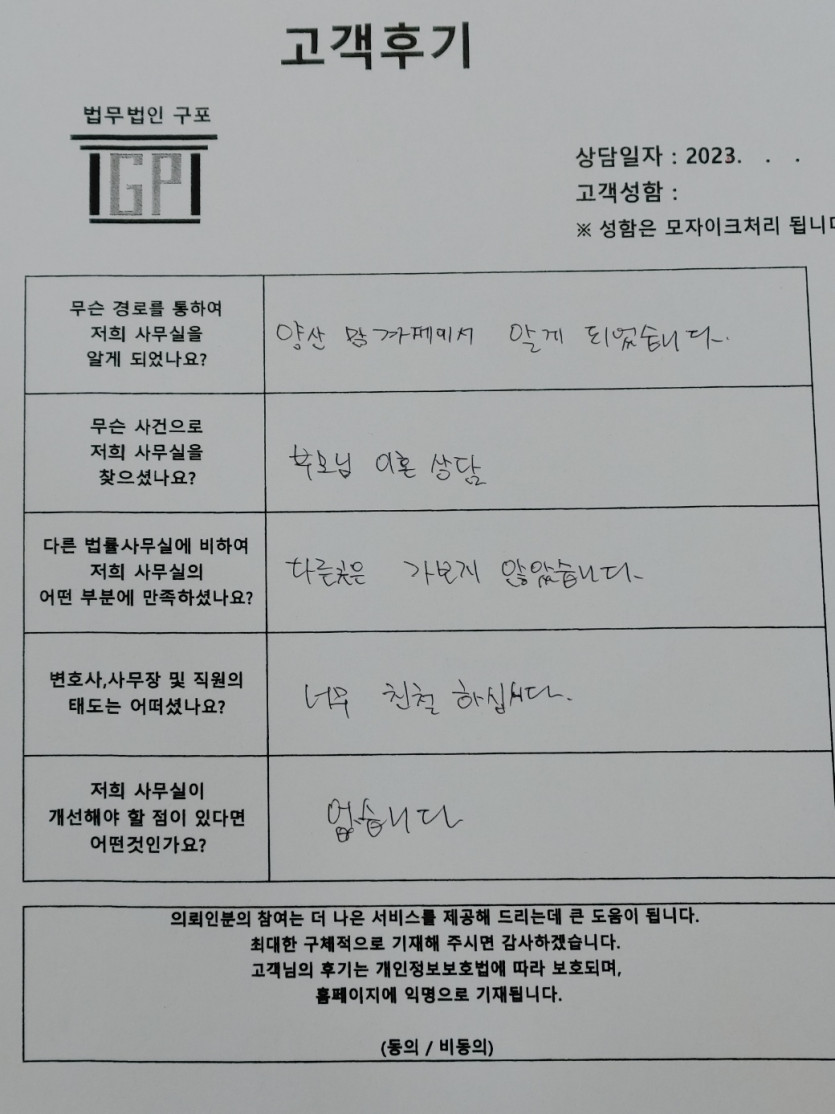 고객후기
법무법인 구포
GP
상담일자 : 2023. . .
고객성함 :
※ 성함은 모자이크처리 됩니다
무슨 경로를 통하여
저희 사무실을
알게 되었나요?
양산 맘 까페에서 알게 되었습니다.
무슨 사건으로
저희 사무실을
찾으셨나요?
부모님 이혼 상담
다른 법률사무실에 비하여
저희 사무실의
어떤 부분에 만족하셨나요?
다른곳은 가보지 않았습니다.
변호사,사무장 및 직원의
태도는 어떠셨나요?
너무 친절 하십니다.
저희 사무실이
개선해야 할 점이 있다면
어떤것인가요?
없습니다
의뢰인분의 참여는 더 나은 서비스를 제공해 드리는데 큰 도움이 됩니다.
최대한 구체적으로 기재해 주시면 감사하겠습니다.
고객님의 후기는 개인정보보호법에 따라 보호되며,
홈페이지에 익명으로 기재됩니다.
(동의 / 비동의)